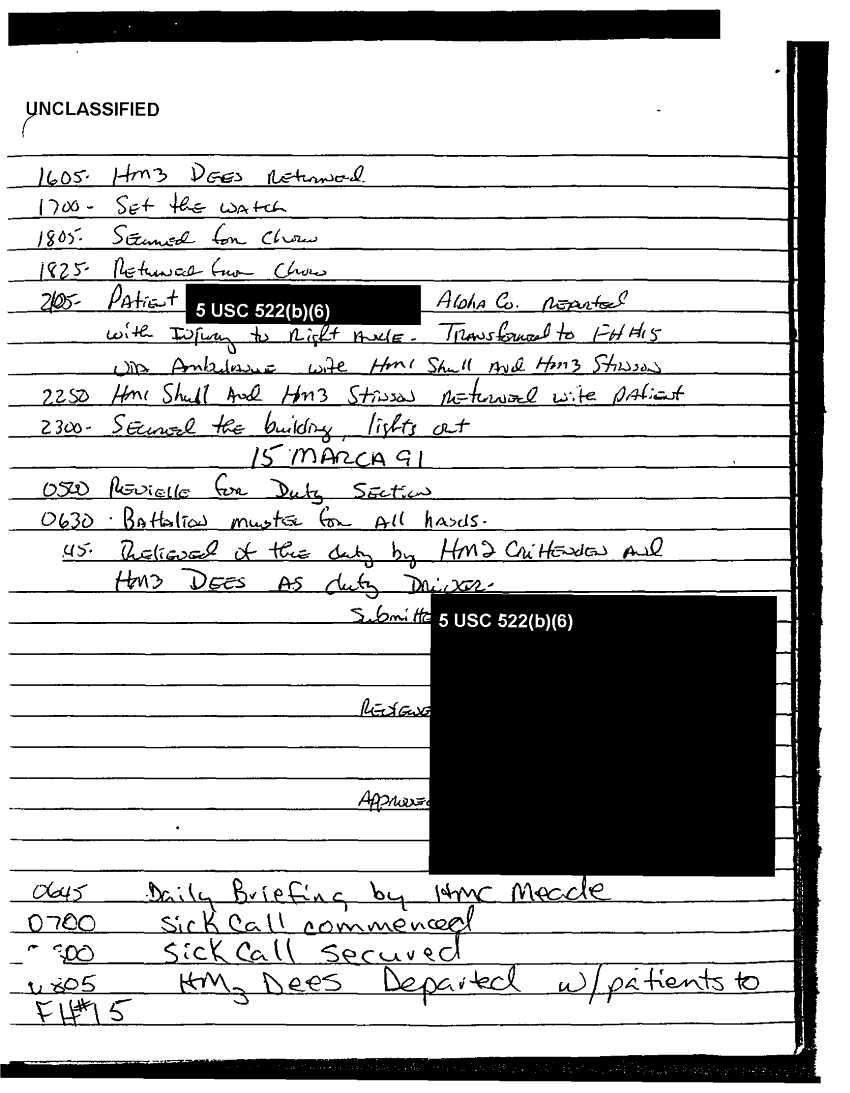 UNCLASSIFIED
1605. HM3 DEES Returned
1700- Set the WATCH
1805. Secured for Chow
1825- Returned from Chow
2105- PAtient 5 USC 522(b)(6) Aloha Co. REported
with Injury to Right Ankle. Transferred to FH #15
via Ambulance with HM1 Shull And HM3 Stinson
2250 HM1 Shull And HM3 Stinson Returned with pAtient
2300- Secured the building, lights out
15 MARCH 91
0500 Revielle for Duty Section
0630 . Battalion muster for All hands.
45. Relieved of the duty by HM2 CRittenden And
HM3 DEES AS duty Driver.
Submitte 5 USC 522(b)(6)
Reviewe
Approved
0645 Daily Briefing by HMC Meade
0700 Sick Call commenced
00 Sick Call secured
0805 HM3 Dees Departed w/patients to
FH#15